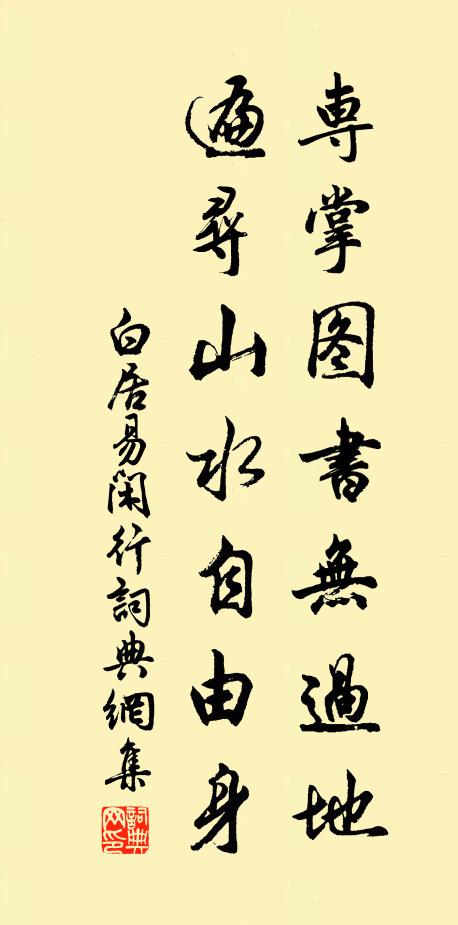 專掌图書無過地
遍尋山水自由身
白居易閑行詞典網集
詞典网印